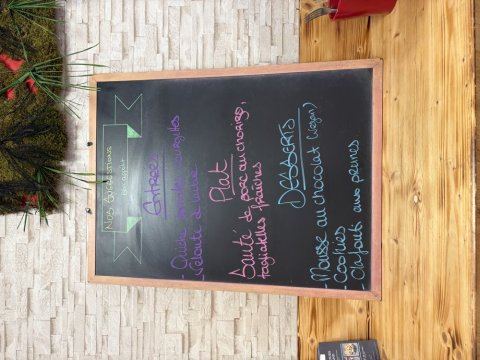 NOS SUGGESTIONS
bon appétit
ENTRÉE
- Quiche carottes courgettes
- Velouté de
Plat
Sauté de porc au chorizo,
tagliatelles fraîches
DESSERTS
- Mousse au chocolat (vegan)
- Cookies
- Clafoutis aux prunes